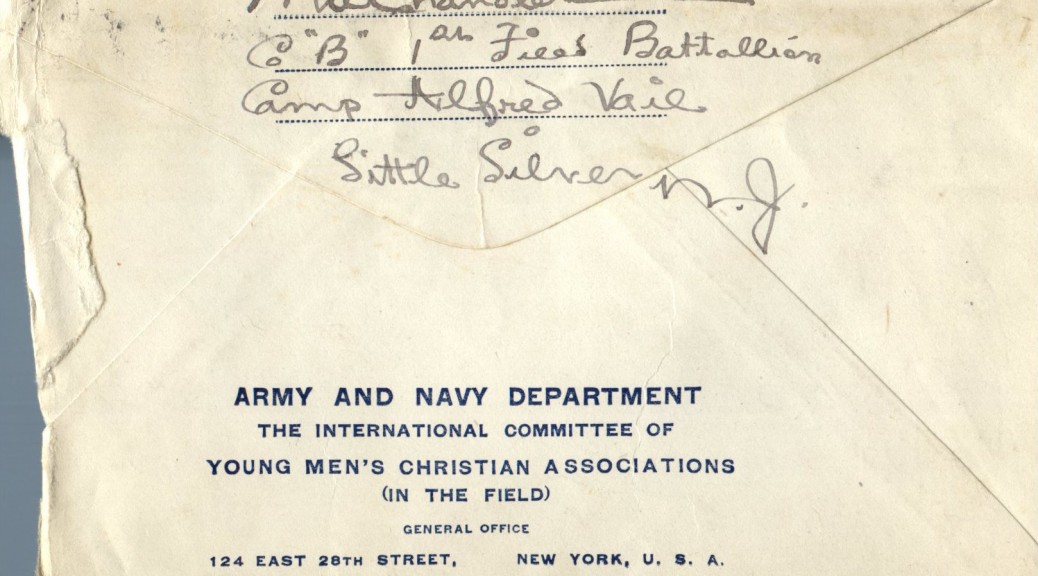 Co "B" 1st Field Battallion
Camp Alfred Vail
Little Silver N.J.
ARMY AND NAVY DEPARTMENT
THE INTERNATIONAL COMMITTEE OF
YOUNG MEN'S CHRISTIAN ASSOCIATIONS
(IN THE FIELD)
GENERAL OFFICE
124 EAST 28TH STREET, NEW YORK, U. S. A.